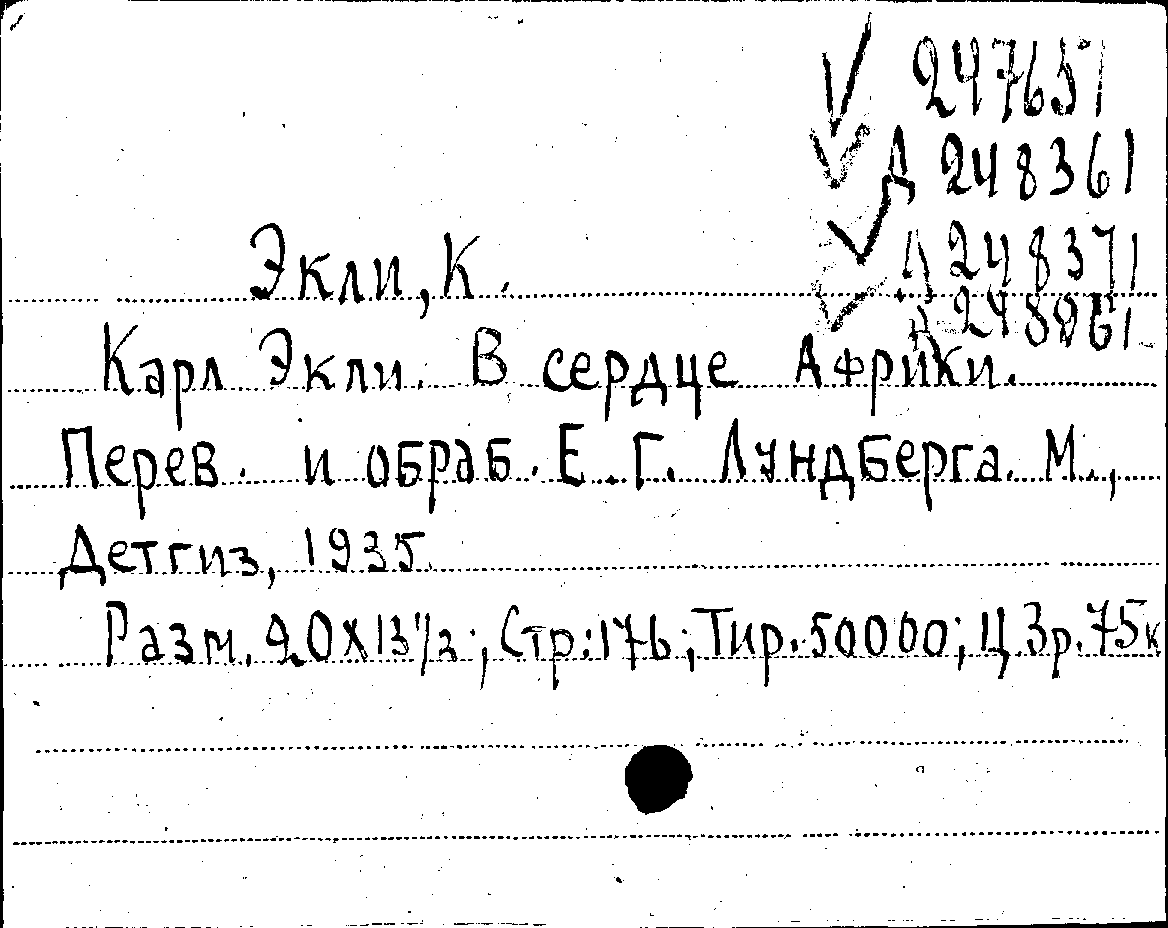 247651
Д 248361
Д 248371
Экли, К.
Карл Экли. В сердце Африки.
Перев. и обраб. Е. Г. Лундберга. М.,
Детгиз, 1935.
Разм. 20X13 1/2; Стр: 176; Тир. 50000; Ц 3р. 75к